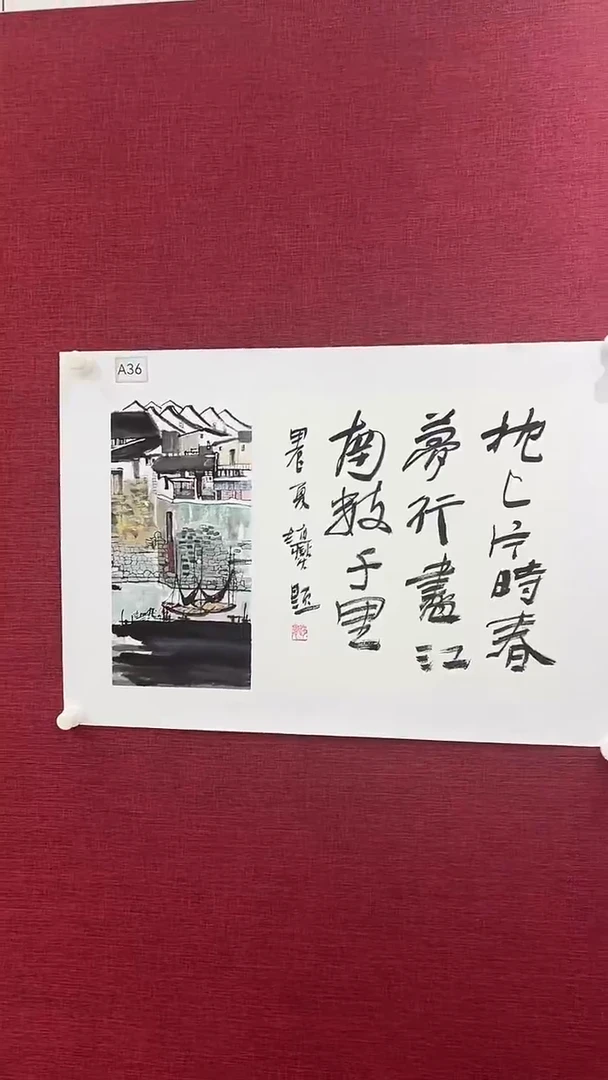 A36
枕上片時春
夢行盡江
南數千里
暑夏題